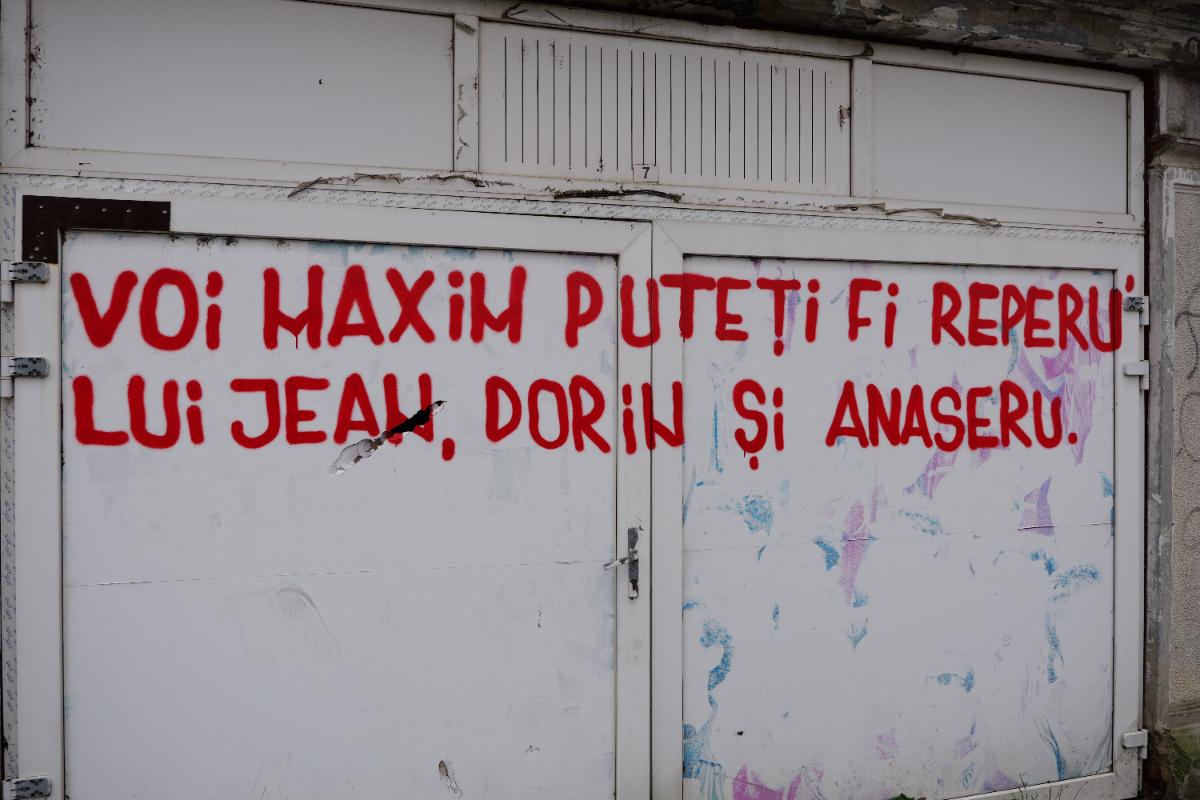 7
VOi MAXiM PUTEȚi Fi REPERU'
LUi JEAN, DORiN Și ANASERU.